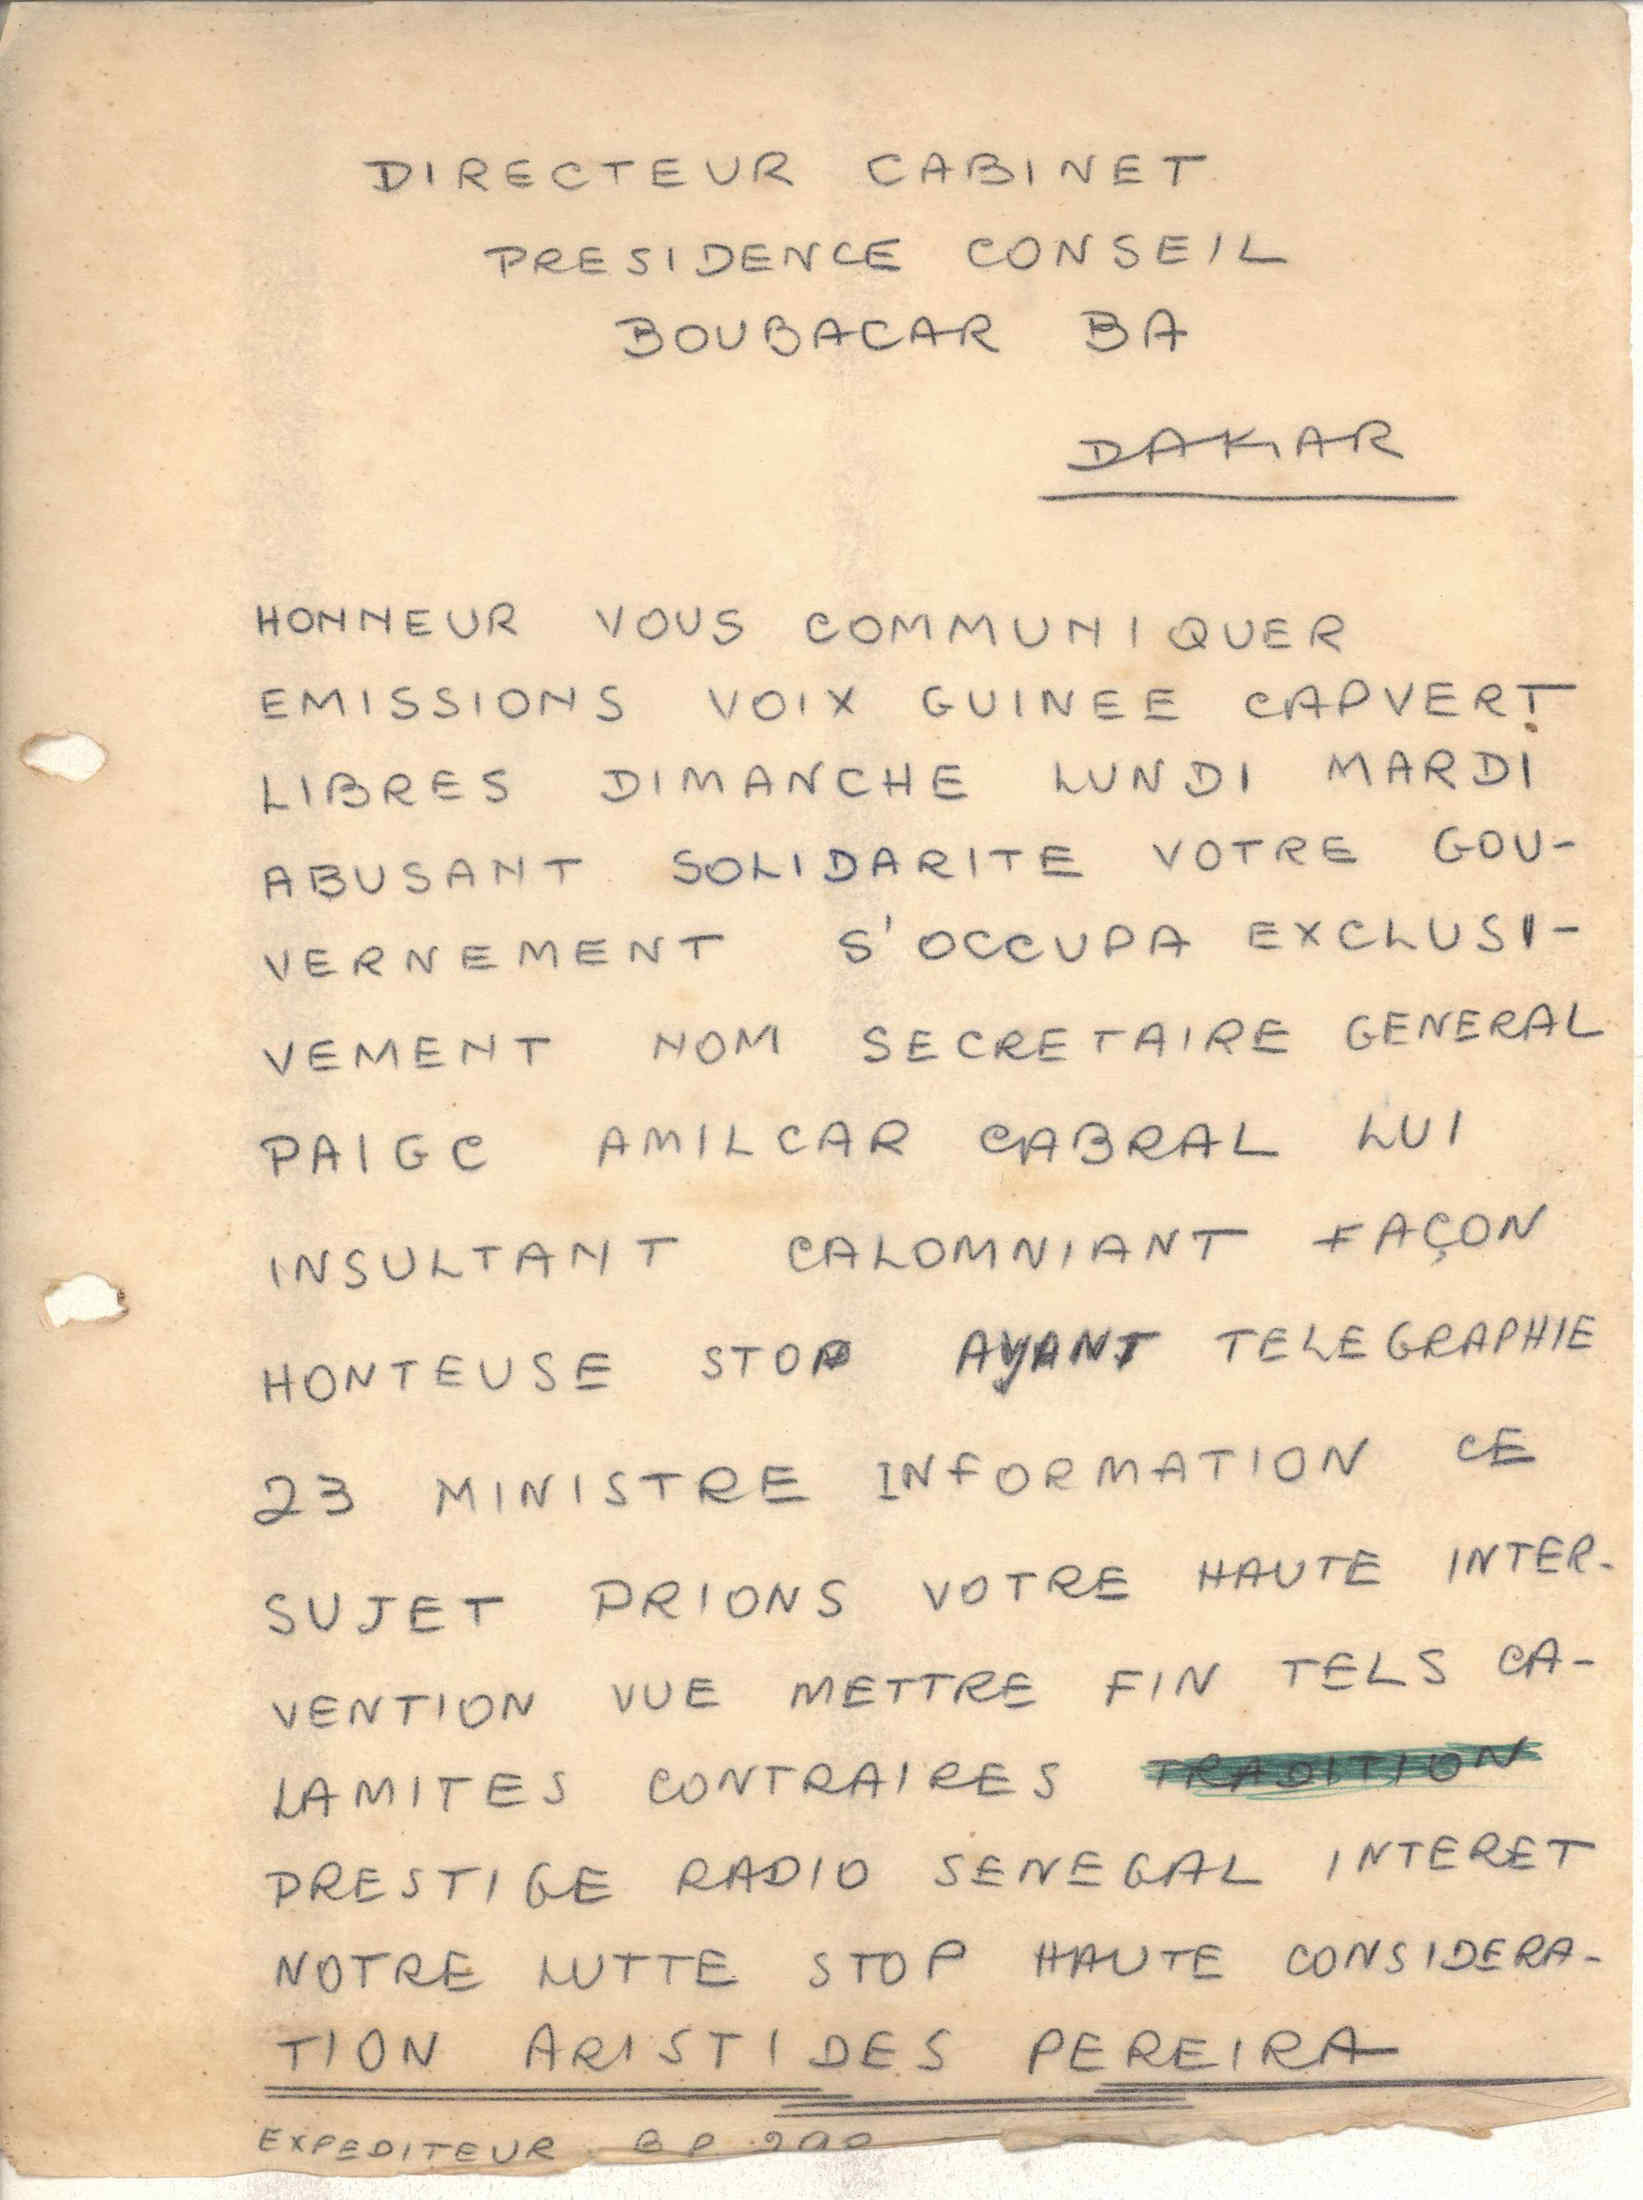 DIRECTEUR CABINET
PRESIDENCE CONSEIL
BOUBACAR BA
DAKAR
HONNEUR VOUS COMMUNIQUER
EMISSIONS VOIX GUINEE CAPVERT
LIBRES DIMANCHE LUNDI MARDI
ABUSANT SOLIDARITE VOTRE GOU-
VERNEMENT S'OCCUPA EXCLUSI-
VEMENT NOM SECRETAIRE GENERAL
PAIGC AMILCAR CABRAL LUI
INSULTANT CALOMNIANT FAÇON
HONTEUSE STOP AYANT TELEGRAPHIE
23 MINISTRE INFORMATION CE
SUJET PRIONS VOTRE HAUTE INTER-
VENTION VUE METTRE FIN TELS CA-
LAMITES CONTRAIRES TRADITION
PRESTIGE RADIO SENEGAL INTERET
NOTRE LUTTE STOP HAUTE CONSIDERA-
TION ARISTIDES PEREIRA
EXPEDITEUR BP